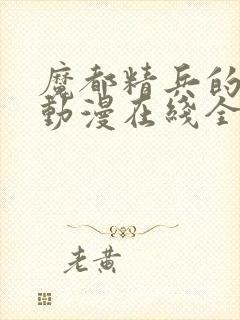 魔都精兵的
動漫在綫全
老黃